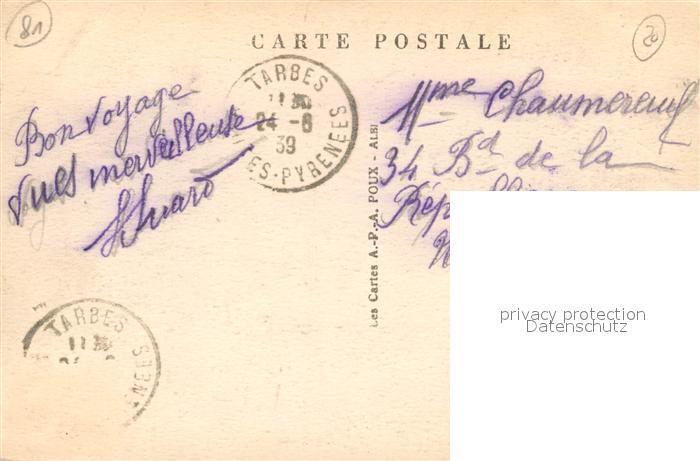 81
20
CARTE POSTALE
TARBES
11 30
24 - 6
39
ES-PYRENEES
Bon voyage
vues merveilleuses
Mme Chaumereuil
34 Bd de la
Les Cartes A.-P.-A. POUX - ALBI
TARBES
NEES
privacy protection
Datenschutz